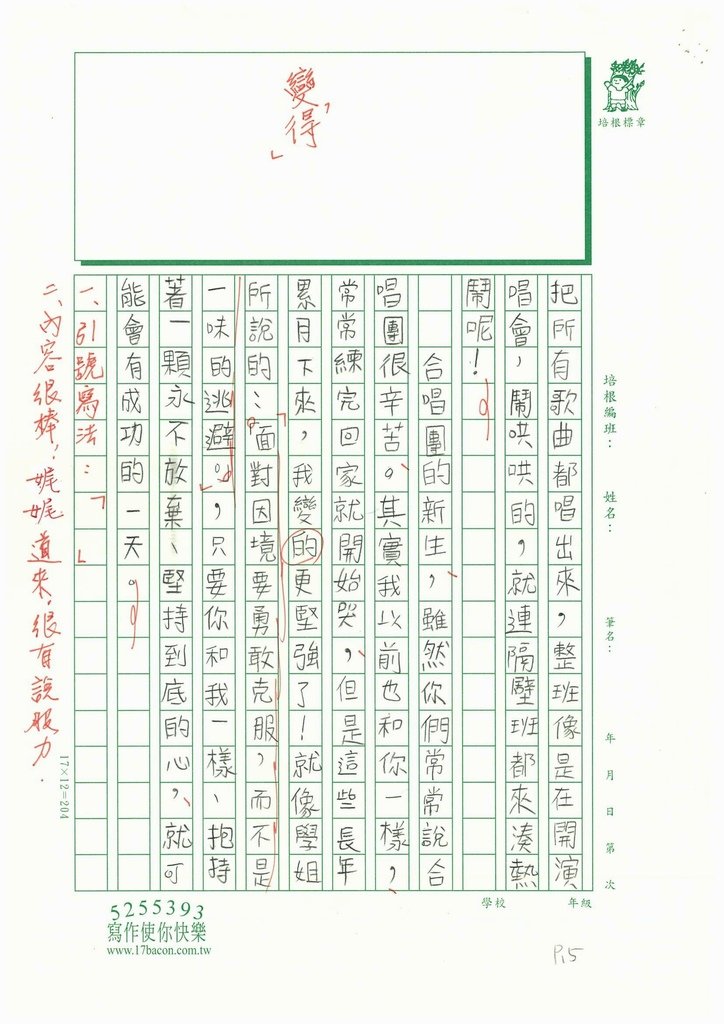 變得
培根標章
培根編班：
姓名：
筆名：
年 月 日 第 次
把所有歌曲都唱出來，整班像是在開演
唱會，鬧哄哄的，就連隔壁班都來湊熱
鬧呢！
合唱團的新生，雖然你們常常說合
唱團很辛苦。其實我以前也和你一樣，
常常練完回家就開始哭，但是這些長年
累月下來，我變的更堅強了！就像學姐
所說的：「面對困境要勇敢克服，而不是
一味的逃避。」，只要你和我一樣、抱持
著一顆永不放棄、堅持到底的心，就可
能會有成功的一天。
一、引號寫法：「」
二、內容很棒，娓娓道來，很有說服力．
17×12=204
學校
年級
5255393
寫作使你快樂
www.17bacon.com.tw
P.5